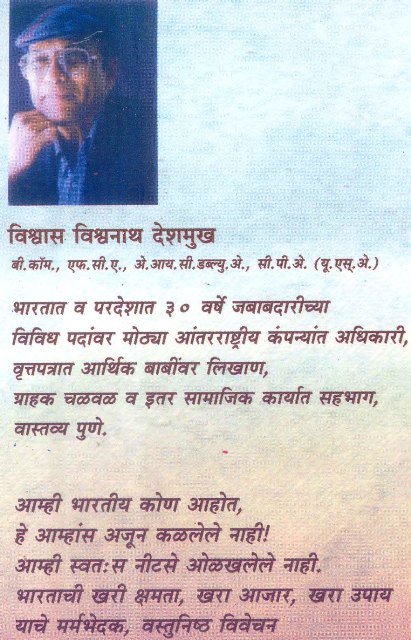 विश्वास विश्वनाथ देशमुख
बी.कॉम., एफ.सी.ए., अे.आय.सी.डब्ल्यु.अे., सी.पी.अे. (यू.एस्.अे.)
भारतात व परदेशात ३० वर्षे जबाबदारीच्या
विविध पदांवर मोठ्या आंतरराष्ट्रीय कंपन्यांत अधिकारी,
वृत्तपत्रात आर्थिक बाबींवर लिखाण,
ग्राहक चळवळ व इतर सामाजिक कार्यात सहभाग,
वास्तव्य पुणे.
आम्ही भारतीय कोण आहोत,
हे आम्हांस अजून कळलेले नाही!
आम्ही स्वतःस नीटसे ओळखलेले नाही.
भारताची खरी क्षमता, खरा आजार, खरा उपाय
याचे मर्मभेदक, वस्तुनिष्ठ विवेचन